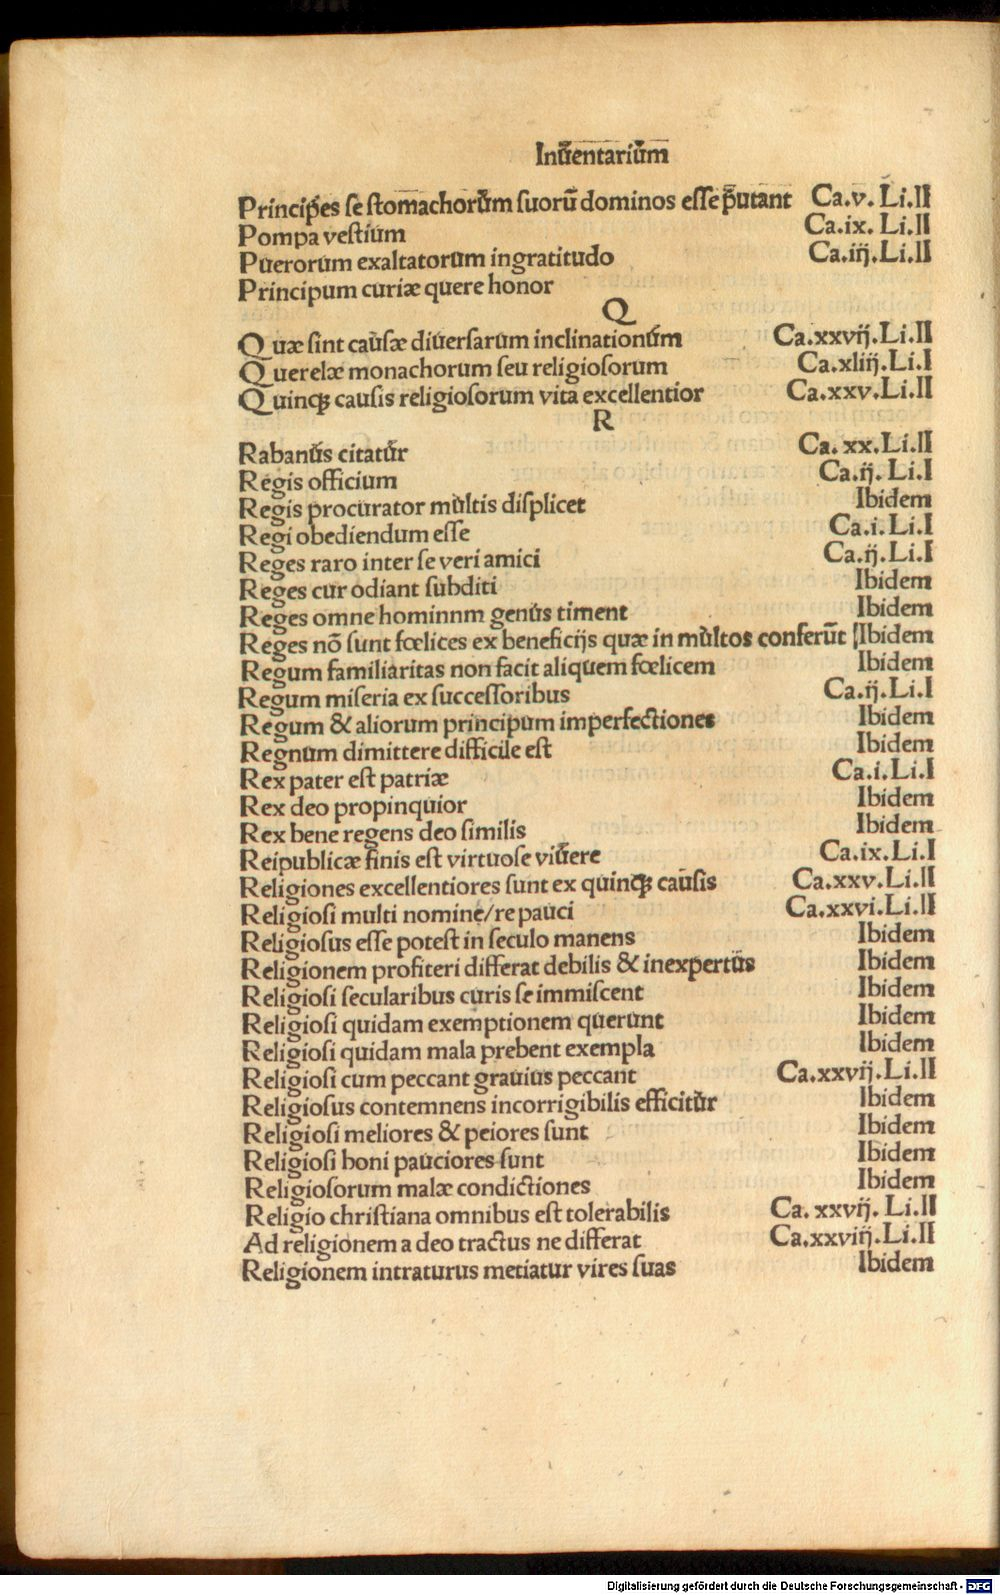 Inventarium
Principes se ſtomachorum ſuorū dominos eſſe p̄utant Ca.v. Li.II
Pompa veſtium Ca.ix. Li.II
Puerorum exaltatorum ingratitudo Ca.iij.Li.II
Principum curiæ quere honor
Q
Quæ ſint cauſæ diuerſarum inclinationum Ca.xxvij.Li.II
Querelæ monachorum ſeu religioſorum Ca.xliij.Li.I
Quinqꝫ cauſis religioſorum vita excellentior Ca.xxv.Li.II
R
Rabanus citatur Ca.xx.Li.II
Regis officium Ca.ij.Li.I
Regis procurator multis diſplicet Ibidem
Regi obediendum eſſe Ca.i.Li.I
Reges raro inter ſe veri amici Ca.ij.Li.I
Reges cur odiant ſubditi Ibidem
Reges omne hominnm genus timent Ibidem
Reges nō ſunt fœlices ex beneficijs quæ in multos conferūt Ibidem
Regum familiaritas non facit aliquem fœlicem Ibidem
Regum miſeria ex ſucceſſoribus Ca.ij.Li.I
Regum & aliorum principum imperfectiones Ibidem
Regnum dimittere difficile eſt Ibidem
Rex pater eſt patriæ Ca.i.Li.I
Rex deo propinquior Ibidem
Rex bene regens deo ſimilis Ibidem
Reipublicæ finis eſt virtuoſe viuere Ca.ix.Li.I
Religiones excellentiores ſunt ex quinqꝫ cauſis Ca.xxv.Li.II
Religioſi multi nomine/re pauci Ca.xxvi.Li.II
Religioſus eſſe poteſt in ſeculo manens Ibidem
Religionem profiteri differat debilis & inexpertus Ibidem
Religioſi ſecularibus curis ſe immiſcent Ibidem
Religioſi quidam exemptionem querunt Ibidem
Religioſi quidam mala prebent exempla Ibidem
Religioſi cum peccant grauius peccant Ca.xxvij.Li.II
Religioſus contemnens incorrigibilis efficitur Ibidem
Religioſi meliores & peiores ſunt Ibidem
Religioſi boni pauciores ſunt Ibidem
Religioſorum malæ condictiones Ibidem
Religio chriſtiana omnibus eſt tolerabilis Ca.xxvij.Li.II
Ad religionem a deo tractus ne differat Ca.xxviij.Li.II
Religionem intraturus metiatur vires ſuas Ibidem
Digitalisierung gefördert durch die Deutsche Forschungsgemeinschaft - DFG